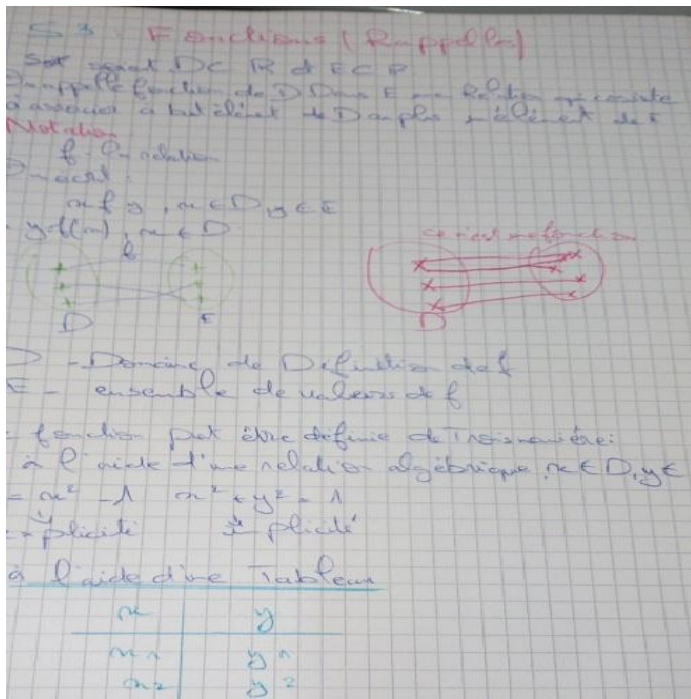 § 3. Fonctions (Rappelles)
Soit D ⊂ R et E ⊂ R
On appelle fonction de D Dans E une Relation qui consiste
à associer à tout élément de D au plus un élément de E
Notation
f - relation
On écrit :
x f y, x ∈ D, y ∈ E
y = f(x), x ∈ D
f
ce n'est une fonction
D E
D
D - Domaine de Définition de f
E - ensemble de valeurs de f
fonction peut être définie de Trois manière:
à l'aide d'une relation algébrique, x ∈ D, y ∈
= x² - 1 x² + y² = 1
explicité implicité
à l'aide d'une Tableau
x y
x1 y1
x2 y2